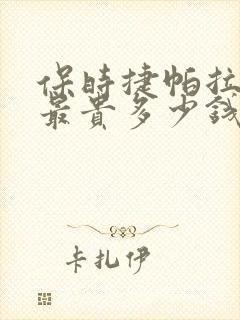 保時捷帕拉
最貴多少錢
卡扎伊